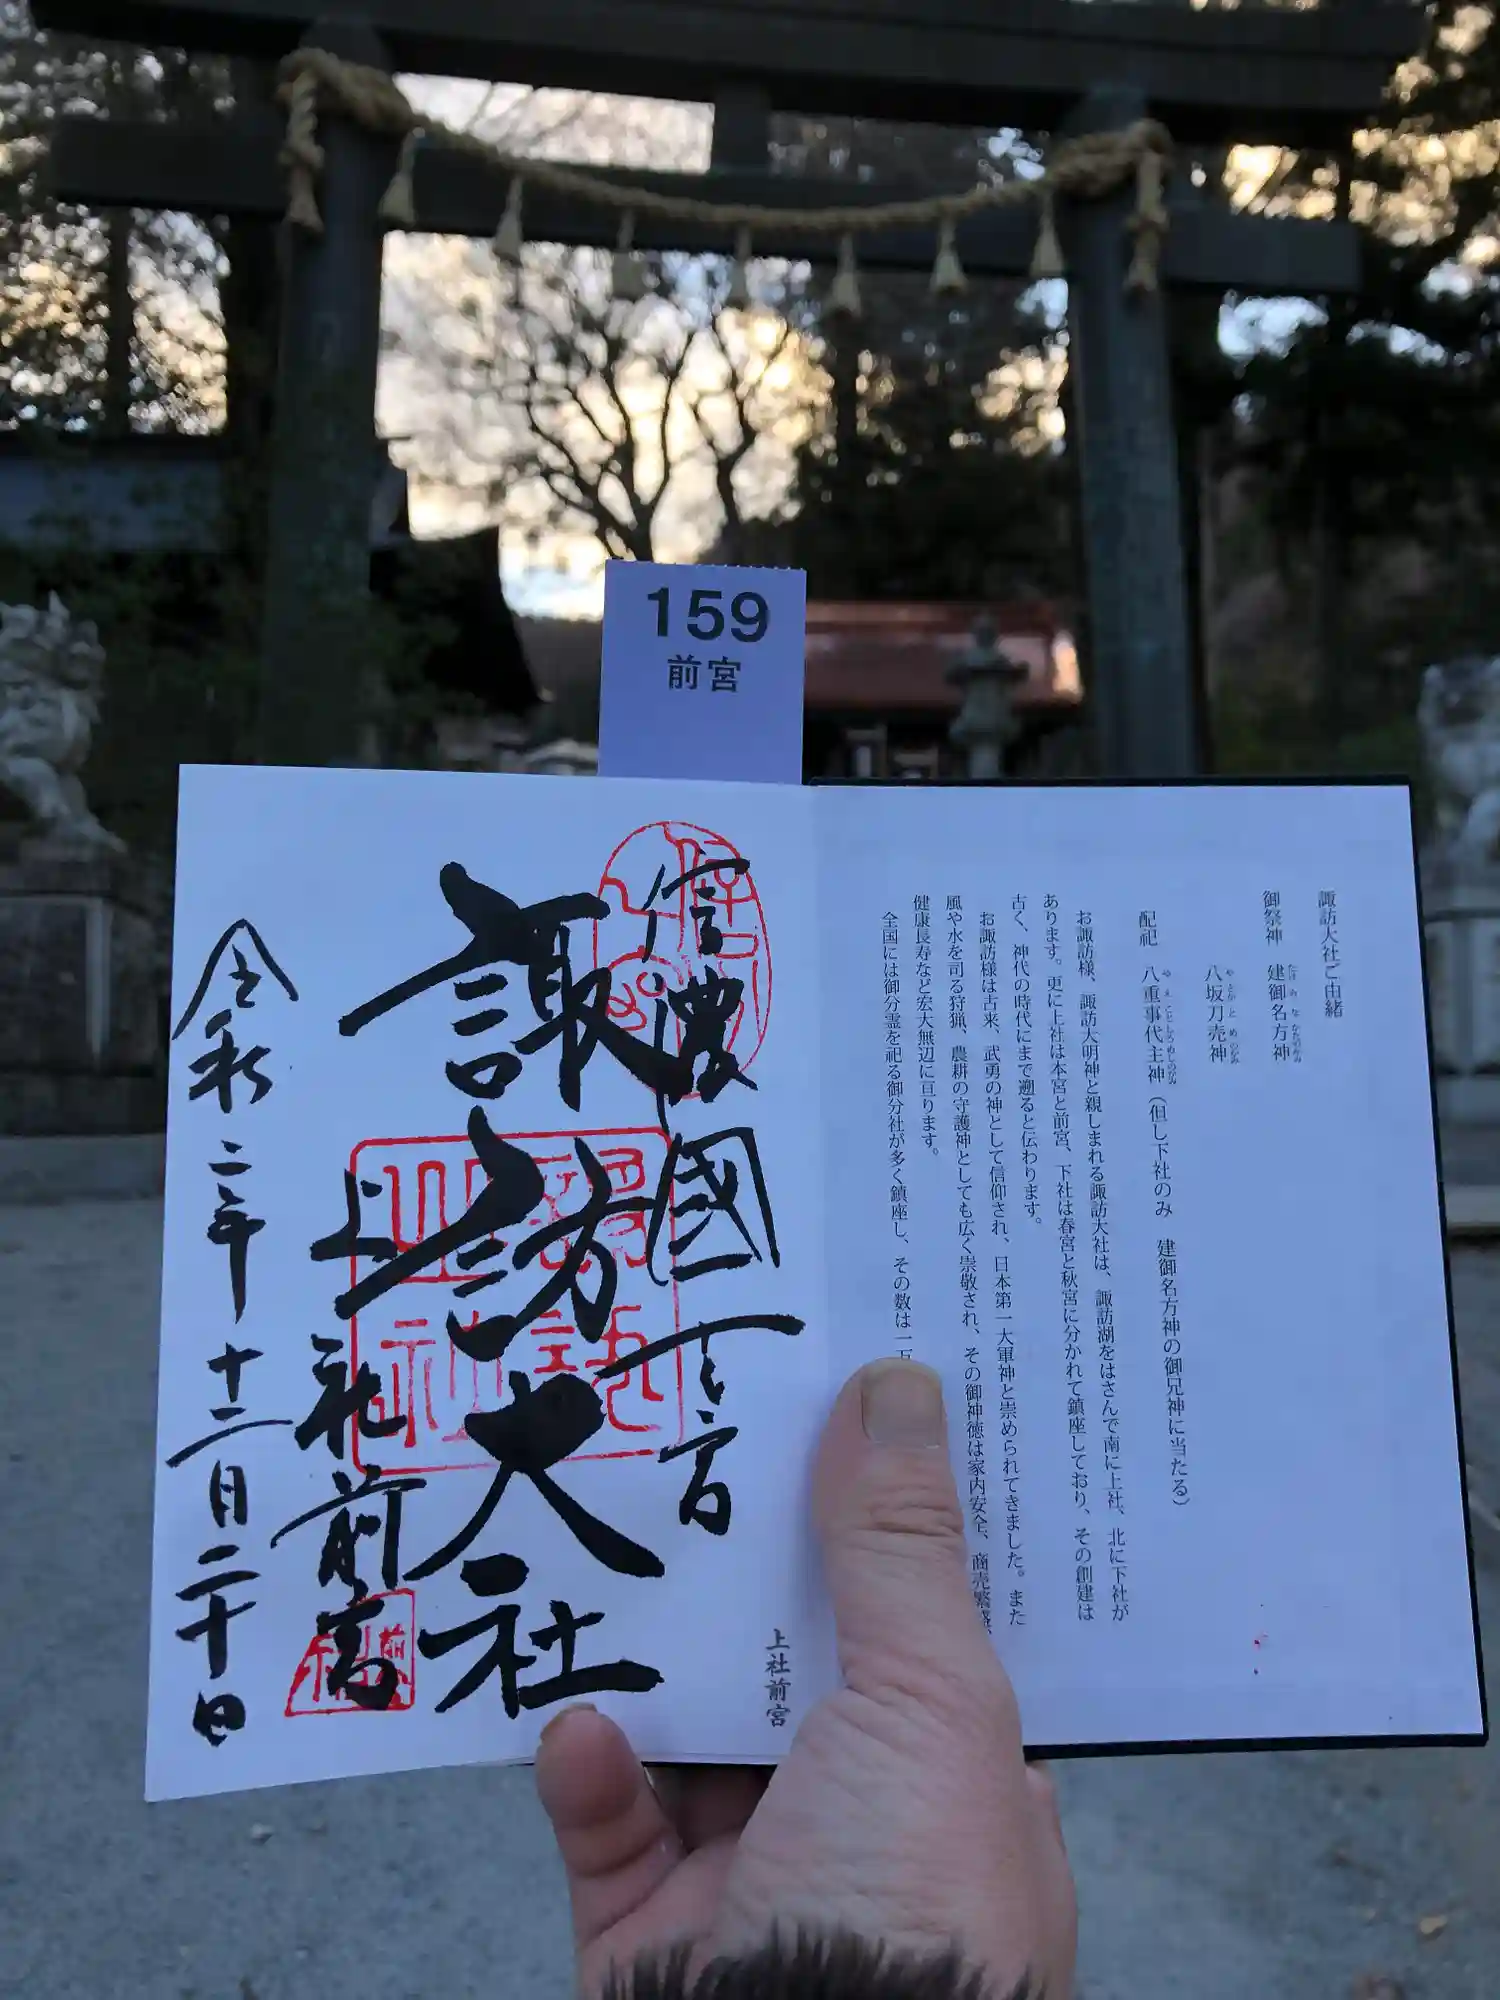 159
前宮
諏訪大社ご由緒
御祭神　建御名方神
たけみなかたのかみ
八坂刀売神
やさかとめのかみ
配祀　八重事代主神（但し下社のみ　建御名方神の御兄神に当たる）
やえことしろぬしのかみ
お諏訪様、諏訪大明神と親しまれる諏訪大社は、諏訪湖をはさんで南に上社、北に下社が
あります。更に上社は本宮と前宮、下社は春宮と秋宮に分かれて鎮座しており、その創建は
古く、神代の時代にまで遡ると伝わります。
お諏訪様は古来、武勇の神として信仰され、日本第一大軍神と崇められてきました。また
風や水を司る狩猟、農耕の守護神としても広く崇敬され、その御神徳は家内安全、商売繁盛、
健康長寿など宏大無辺に亘ります。
全国には御分霊を祀る御分社が多く鎮座し、その数は一万
上社前宮
信濃國一宮
諏訪大社
上社前宮
令和二年十二月二十日